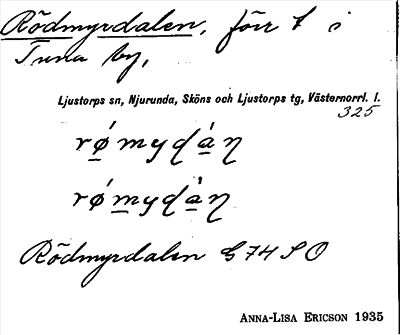 Rödmyrdalen, förr t i
Tuna by,
Ljustorps sn, Njurunda, Sköns och Ljustorps tg, Västernorrl. l.
325
Rödmyrdalen G 74 S O
ANNA-LISA ERICSON 1935